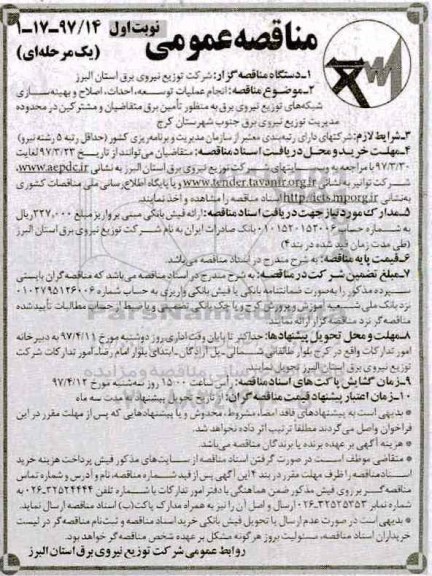 مناقصه عمومی
نوبت اول
۹۷/۱۴-۱۷-۱
(یک مرحله‌ای)
۱-دستگاه مناقصه‌گزار: شرکت توزیع نیروی برق استان البرز
۲-موضوع مناقصه: انجام عملیات توسعه، احداث، اصلاح و بهینه‌سازی
شبکه‌های توزیع نیروی برق به منظور تأمین برق متقاضیان و مشترکین در محدوده
مدیریت توزیع نیروی برق جنوب شهرستان کرج
۳-شرایط لازم: شرکتهای دارای رتبه‌بندی معتبر از سازمان مدیریت و برنامه‌ریزی کشور (حداقل رتبه ۵ رشته نیرو)
۴-مهلت خرید و محل دریافت اسناد مناقصه: متقاضیان می‌توانند از تاریخ ۹۷/۳/۲۳ لغایت
۹۷/۳/۳۰ با مراجعه به وب سایتهای شرکت توزیع نیروی برق استان البرز به نشانی www.aepdc.ir،
شرکت توانیر به نشانی www.tender.tavanir.org.ir و یا پایگاه اطلاع‌رسانی ملی مناقصات کشوری
به نشانی http://iets.mporg.ir اسناد مناقصه را مشاهده و اخذ نمایند.
۵-مدارک مورد نیاز جهت دریافت اسناد مناقصه: ارائه فیش بانکی مبنی بر واریز مبلغ ۳۲۷,۰۰۰ ریال
به شماره حساب ۰۱۰۱۵۲۰۱۵۲۰۰۶ بانک صادرات ایران به نام شرکت توزیع نیروی برق استان البرز
(طی مدت زمان قید شده در بند ۴)
۶-قیمت پایه مناقصه: به شرح مندرج در اسناد مناقصه می‌باشد.
۷-مبلغ تضمین شرکت در مناقصه: به شرح مندرج در اسناد مناقصه می‌باشد که مناقصه‌گران بایستی
سپرده مذکور را به‌صورت ضمانتنامه بانکی یا فیش بانکی واریزی به حساب شماره ۰۱۰۲۷۹۵۱۲۶۰۰۶
نزد بانک ملی شعبه آموزش و پرورش کرج و یا چک بانکی تضمینی و یا ضبط از حساب مطالبات تأیید شده
مناقصه‌گر نزد مناقصه‌گزار ارائه نمایند.
۸-مهلت و محل تحویل پیشنهادها: حداکثر تا پایان وقت اداری روز دوشنبه مورخ ۹۷/۴/۱۱ به دبیرخانه
امور تدارکات واقع در کرج بلوار طالقانی شمالی - پل آزادگان - ابتدای بلوار امام رضا، امور تدارکات شرکت
توزیع نیروی برق استان البرز تحویل نمایند.
۹-زمان گشایش پاکت‌های اسناد مناقصه: رأس ساعت ۱۵:۰۰ روز سه‌شنبه مورخ ۹۷/۴/۱۲
۱۰-زمان اعتبار پیشنهاد قیمت مناقصه‌گران: از تاریخ تحویل پیشنهاد به مدت سه ماه
* بدیهی است به پیشنهادهای فاقد امضاء، مشروط، مخدوش و یا پیشنهادهایی که پس از مهلت مقرر در این
فراخوان واصل می‌گردند مطلقا ترتیب اثر داده نخواهد شد.
* هزینه آگهی بر عهده برنده یا برندگان مناقصه می‌باشد.
* متقاضی موظف است در صورت گرفتن اسناد مناقصه از سایت‌های مذکور فیش پرداخت هزینه خرید
اسناد مناقصه را ظرف مهلت مقرر در بند ۴ این آگهی پس از قید شماره مناقصه، نام و آدرس و شماره تماس
مناقصه‌گر بر روی فیش مذکور ضمن هماهنگی با دفتر امور تدارکات با شماره تلفن ۳۲۵۲۴۴۴۴-۰۲۶ به
شماره نمابر ۳۲۵۲۵۳۵۳-۰۲۶ ارسال و اصل آن را نیز به همراه مدارک پاکت(ب) اسناد مناقصه ارسال نماید.
* بدیهی است در صورت عدم ارسال یا تحویل فیش بانکی خرید اسناد مناقصه و ثبت نام مناقصه‌گر در لیست
خریداران اسناد مناقصه، مسئولیت بروز هرگونه مشکل بر عهده شخص مناقصه‌گر خواهد بود.
روابط عمومی شرکت توزیع نیروی برق استان البرز